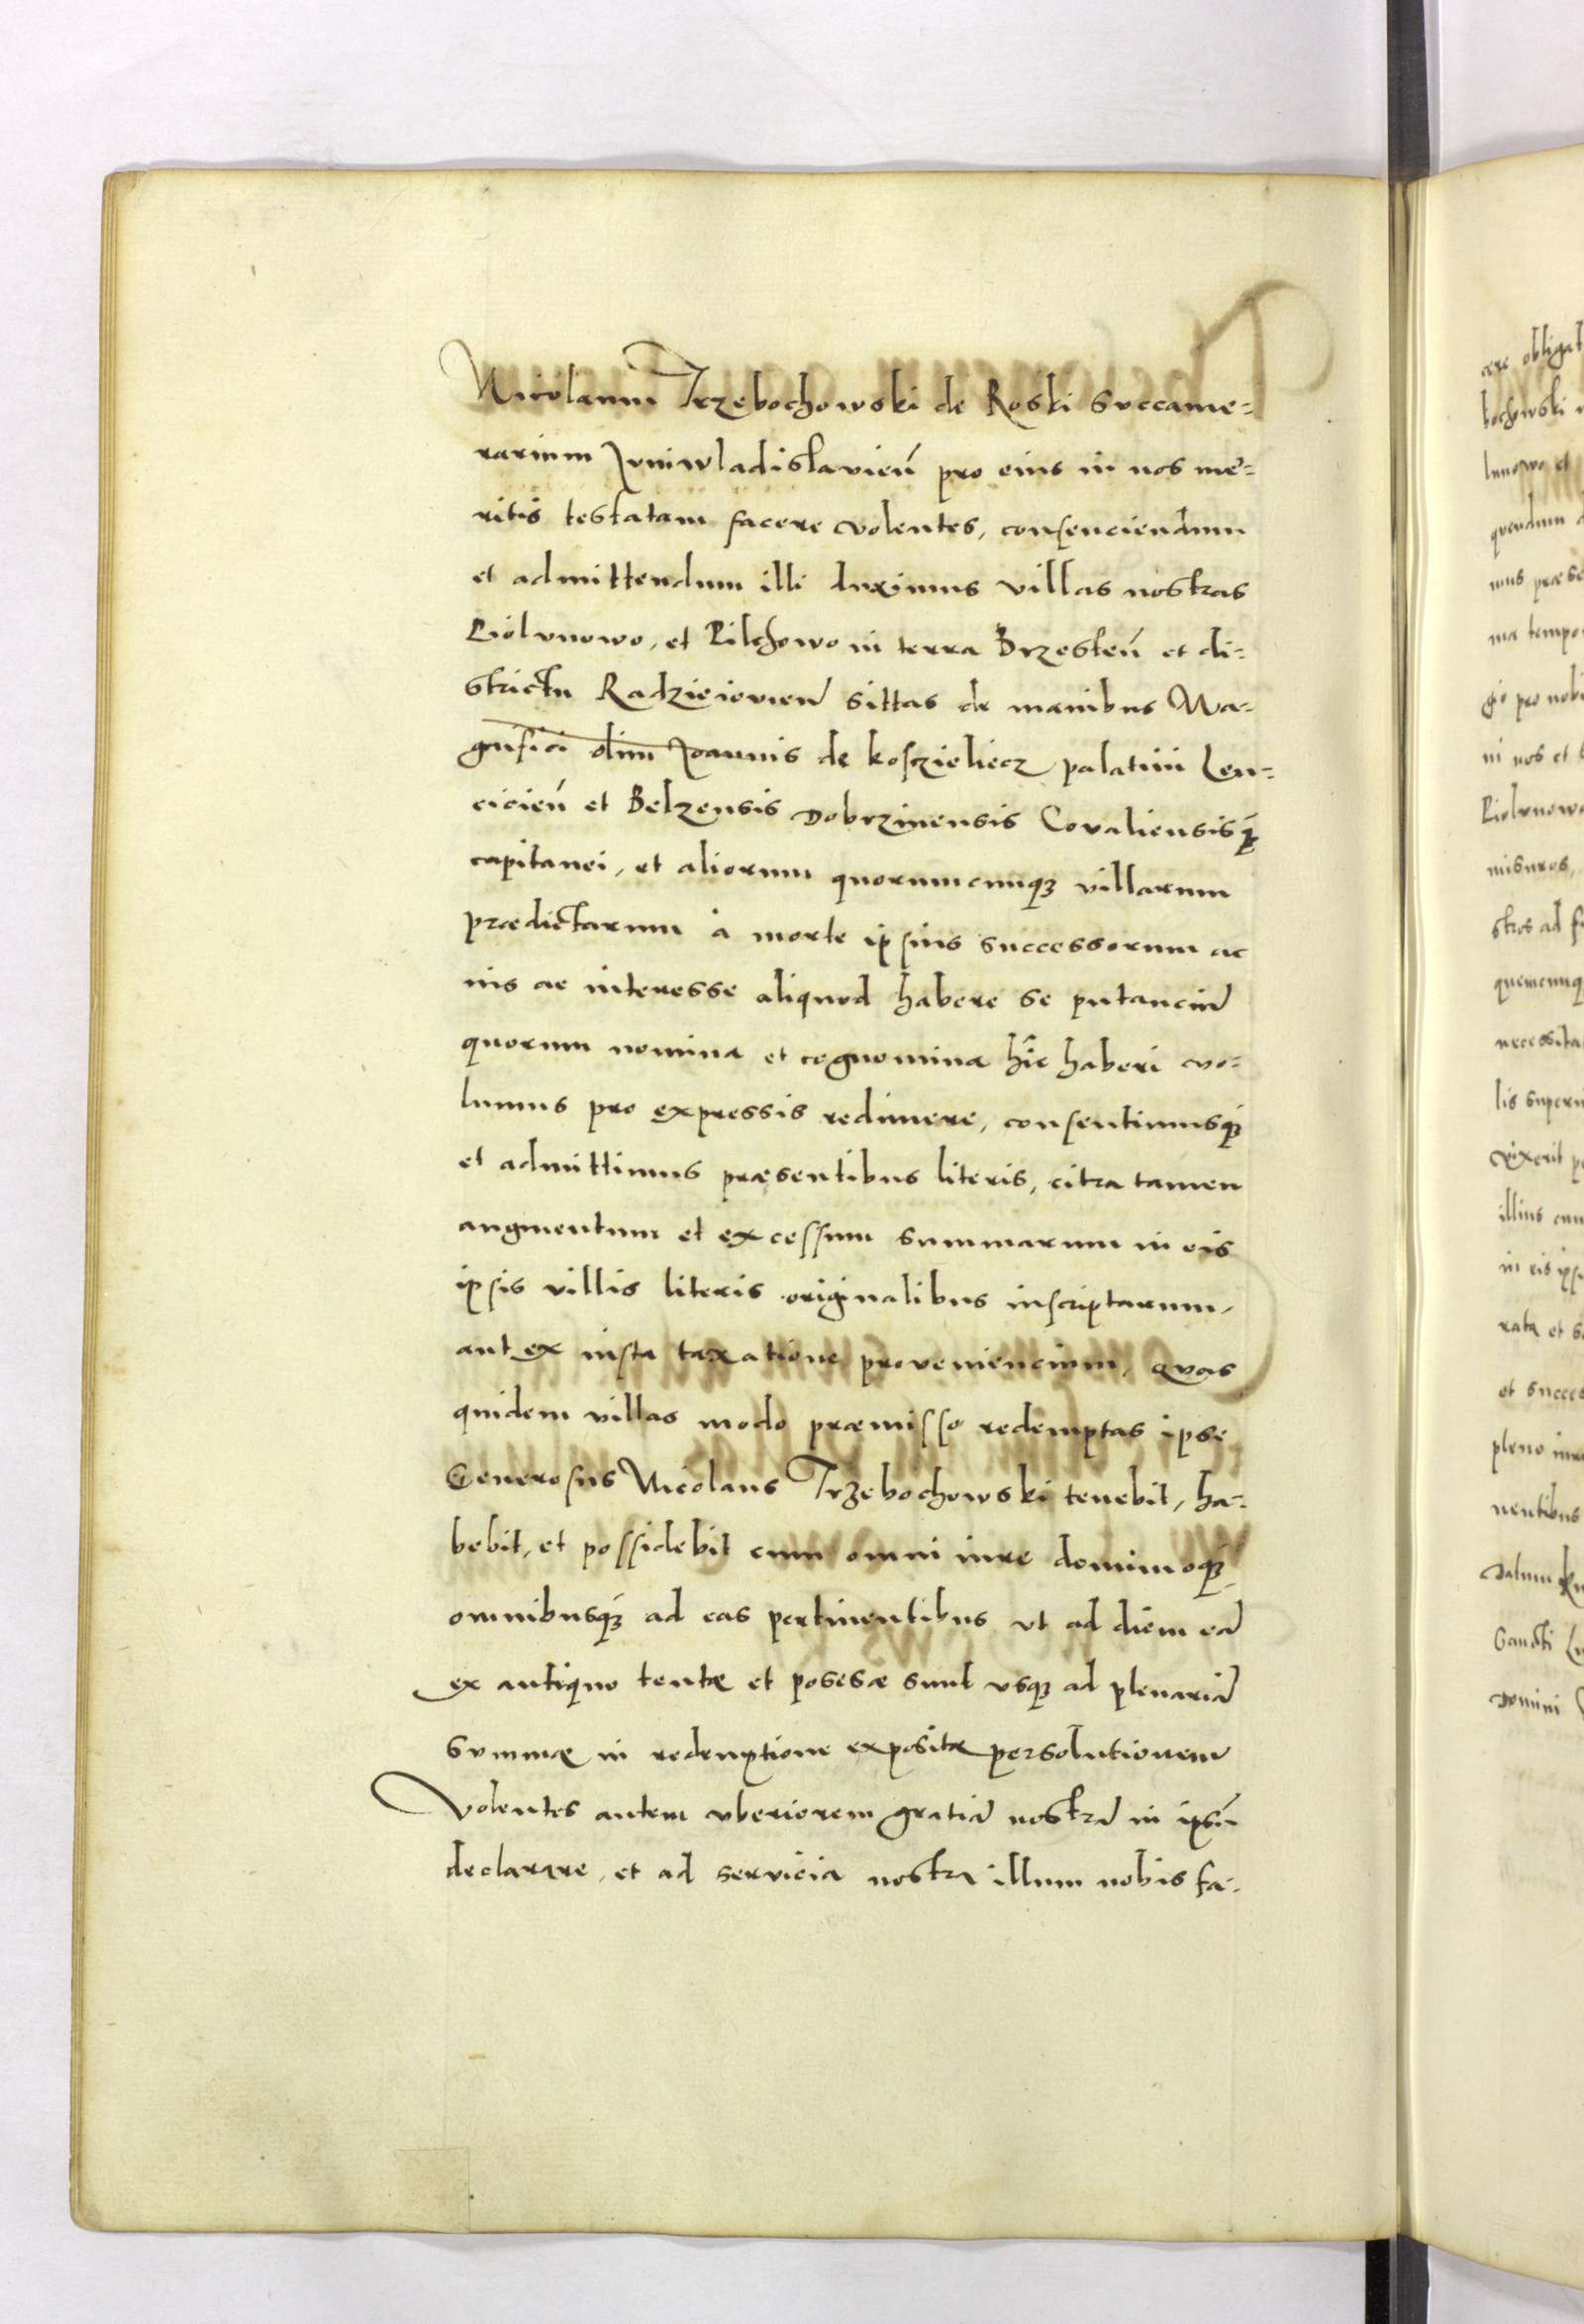 Nicolaum Trzebochowski de Roski succame-
rarium Juniwladislavieñ pro eius in nos me-
ritis testatam facere volentes, consenciendum
et admittendum illi duximus villas nostras
Piolunowo, et Pilchowo in terra Brzesteñ et di-
strictu Radzieiovieñ sittas de manibus Ma-
gnifici olim Joannis de Kosczieliecz palatini Len-
cicieñ et Belzensis Dobrzinensis Covaliensisq́
capitanei, et aliorum quorumcunqꝫ villarum
prædictarum à morte ipsius successorum ac
ius ac interesse aliquod habere se putanciũ
quorum nomina et cognomina hîc haberi vo-
lumus pro expressis redimere, consentimusqꝫ
et admittimus præsentibus literis, citra tamen
augmentum et excessum summarum in eis
ipsis villis literis originalibus inscriptarum,
aut ex iusta taxatione proveniencium, quas
quidem villas modo præmisso redemptas ipse
Generosus Nicolaus Trzebochowski tenebit, ha-
bebit, et possidebit cum omni iure dominioqꝫ
omnibusqꝫ ad eas pertinentibus vt ad diem eã
ex antiquo tentæ et posesæ sunt vsqꝫ ad plenariã
summæ in redemptione expositæ persolutionem
Volentes autem vberiorem gratiã nostrã in ipsũ
declarare, et ad servicia nostra illum nobis fa-
are obligat
bochowski
lunowo et
quendum
mus præse
ma tempo
gio pro nobi
in nos et
Piolunowo
misuros,
stros ad f
quemcunq
necessita
lis superi
vixerit p
illius
in eis ips
rata et s
et succes
pleno iure
nentibus
Datum
Sancti
Domini